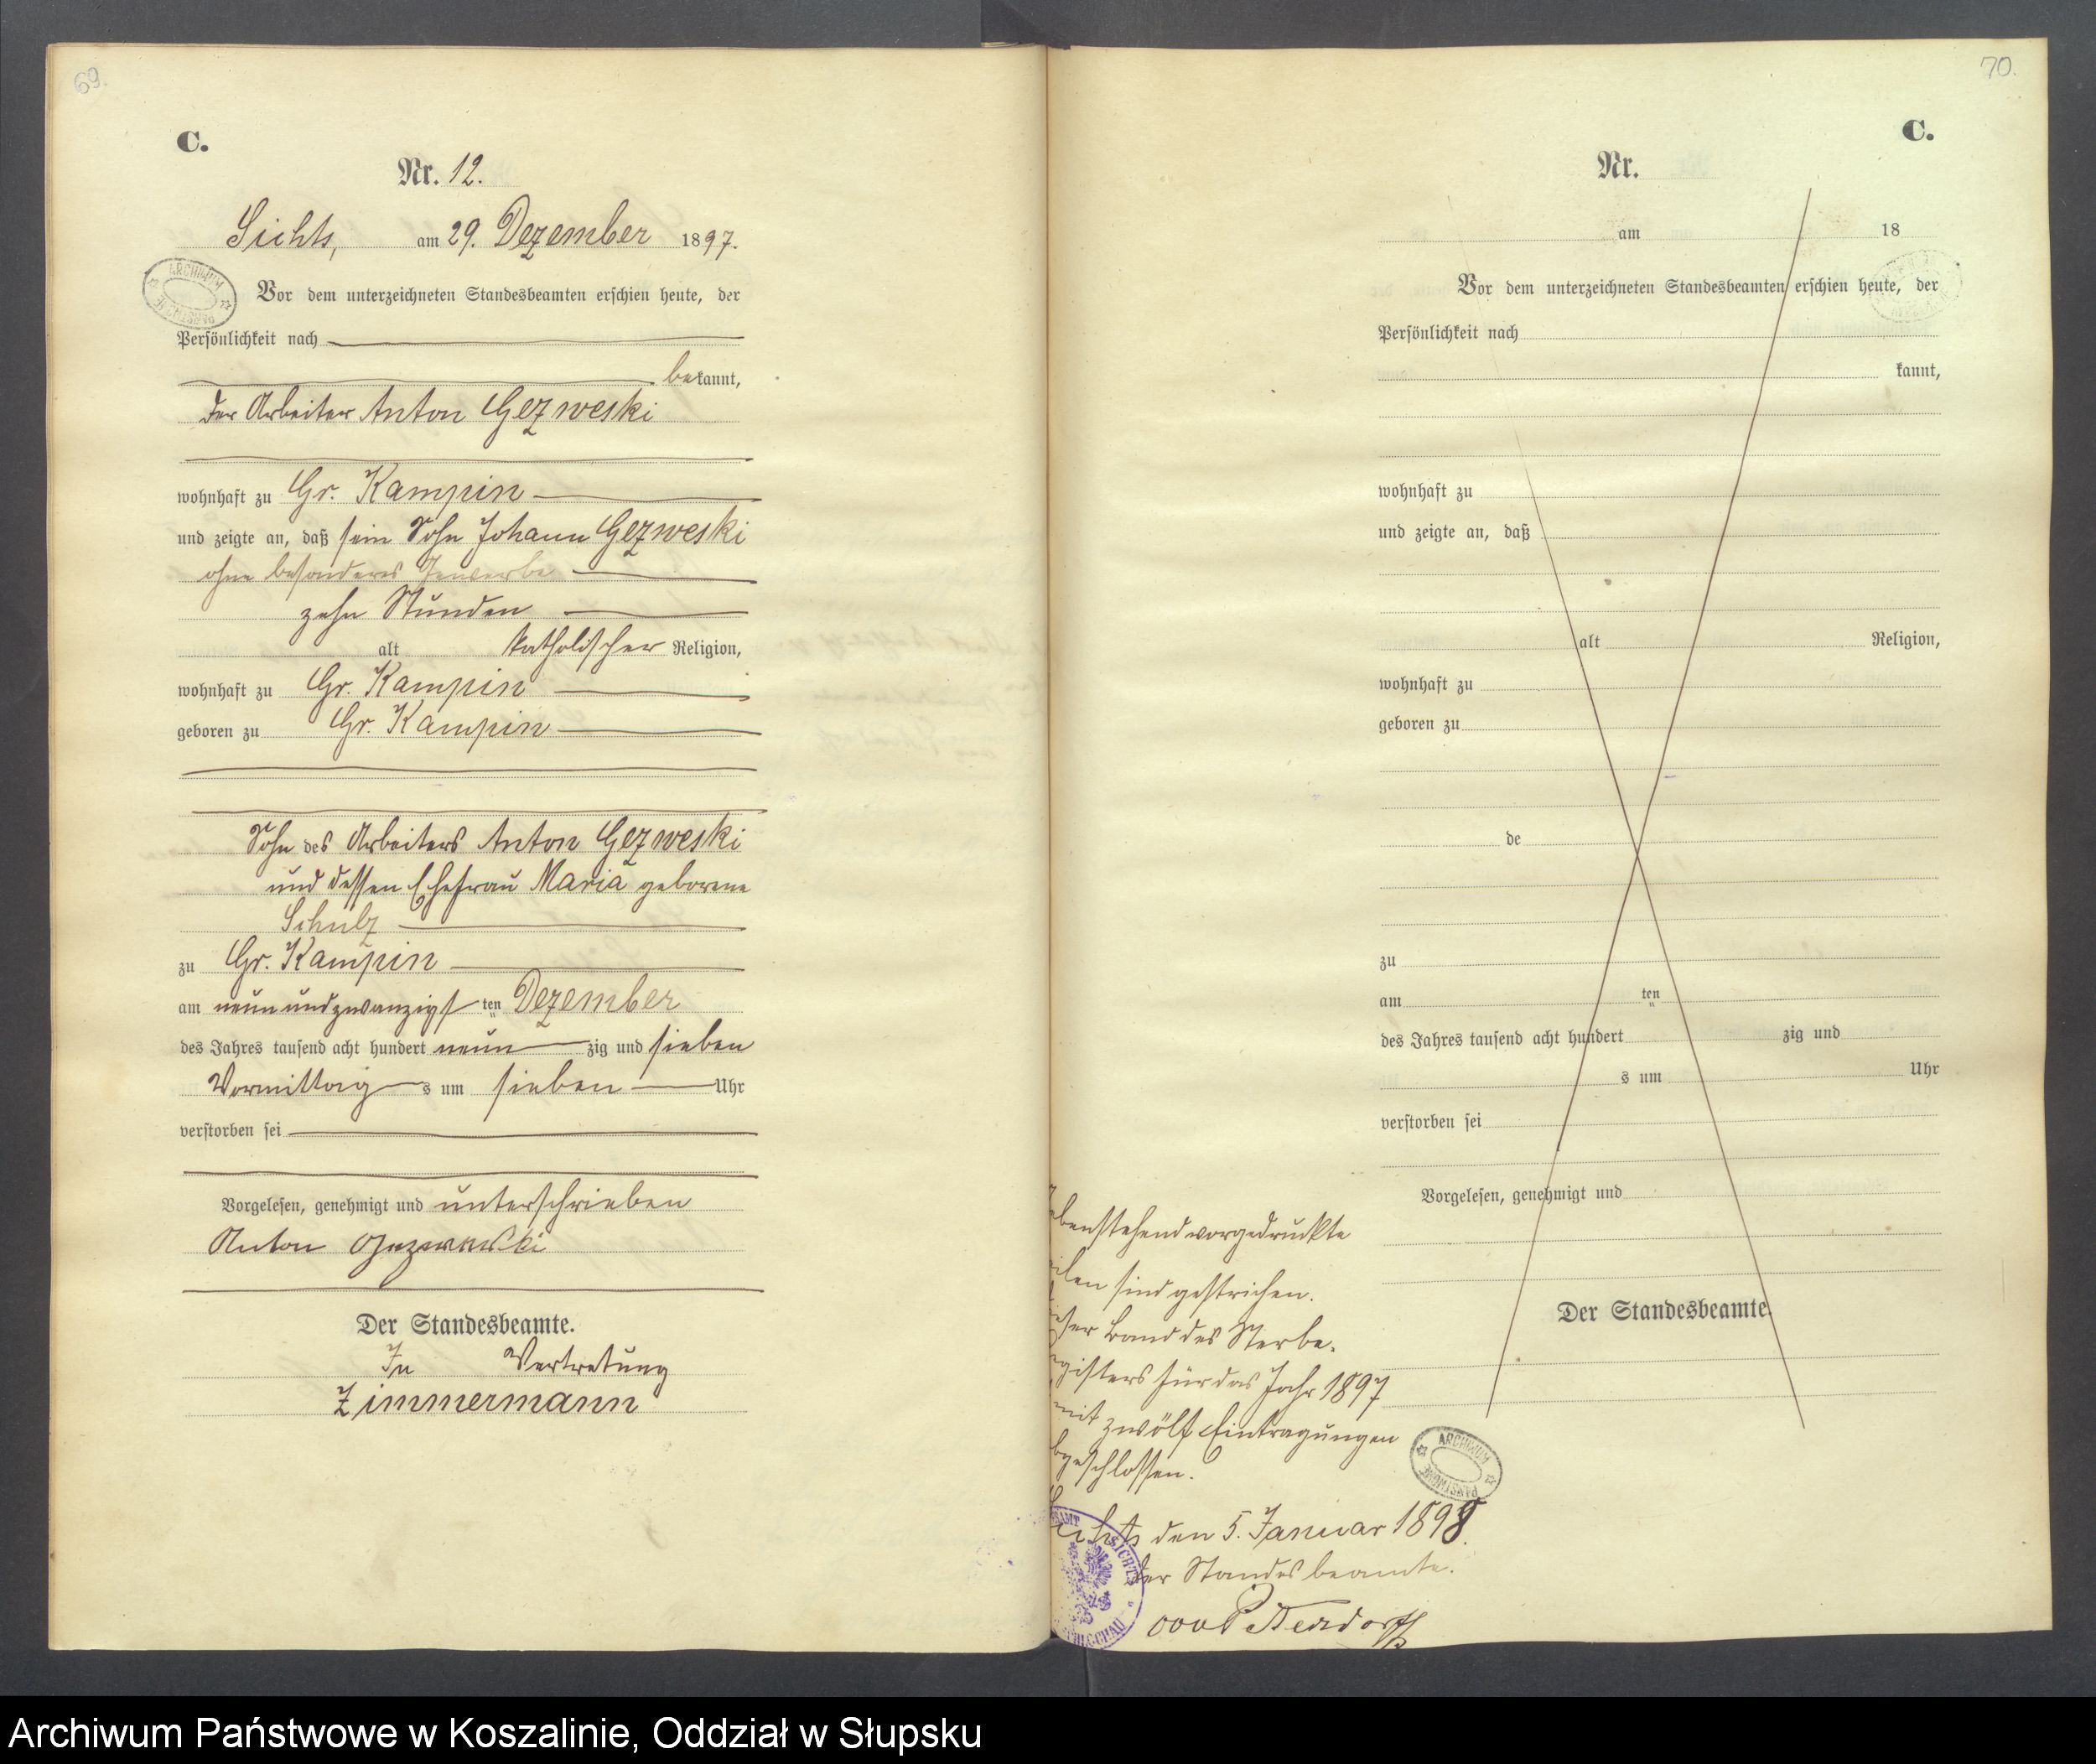 69.
C.
Nr. 12.
Sichts, am 29. Dezember 1897.
ARCHIWUM PAŃSTWOWE
Vor dem unterzeichneten Standesbeamten erschien heute, der
Persönlichkeit nach
bekannt,
der Arbeiter Anton Gezweski
wohnhaft zu Gr. Kampin
und zeigte an, daß sein Sohn Johann Gezweski
ohne besonderes Gewerbe
zehn Stunden
alt katholischer Religion,
wohnhaft zu Gr. Kampin
geboren zu Gr. Kampin
Sohn des Arbeiters Anton Gezweski
und dessen Ehefrau Maria geborene
Schulz
zu Gr. Kampin
am neunundzwanzigsten Dezember
des Jahres tausend acht hundert neunzig und sieben
Vormittags um sieben Uhr
verstorben sei
Vorgelesen, genehmigt und unterschrieben
Anton
Der Standesbeamte.
In Vertretung
Zimmermann
70.
C.
Nr.
am 18
Vor dem unterzeichneten Standesbeamten erschien heute, der
Persönlichkeit nach
kannt,
wohnhaft zu
und zeigte an, daß
alt Religion,
wohnhaft zu
geboren zu
de
zu
am ten
des Jahres tausend acht hundert zig und
s um Uhr
verstorben sei
Vorgelesen, genehmigt und
Der Standesbeamte.
ebenstehend vorgedruckte
ilen sind gestrichen.
ser Band des Sterbe-
gisters für das Jahr 1897
mit zwölf Eintragungen
bgeschlossen.
ARCHIWUM PAŃSTWOWE
Sichts den 5. Januar 1898.
Der Standesbeamte.
SICHTS
SCHLOCHAU
Archiwum Państwowe w Koszalinie, Oddział w Słupsku